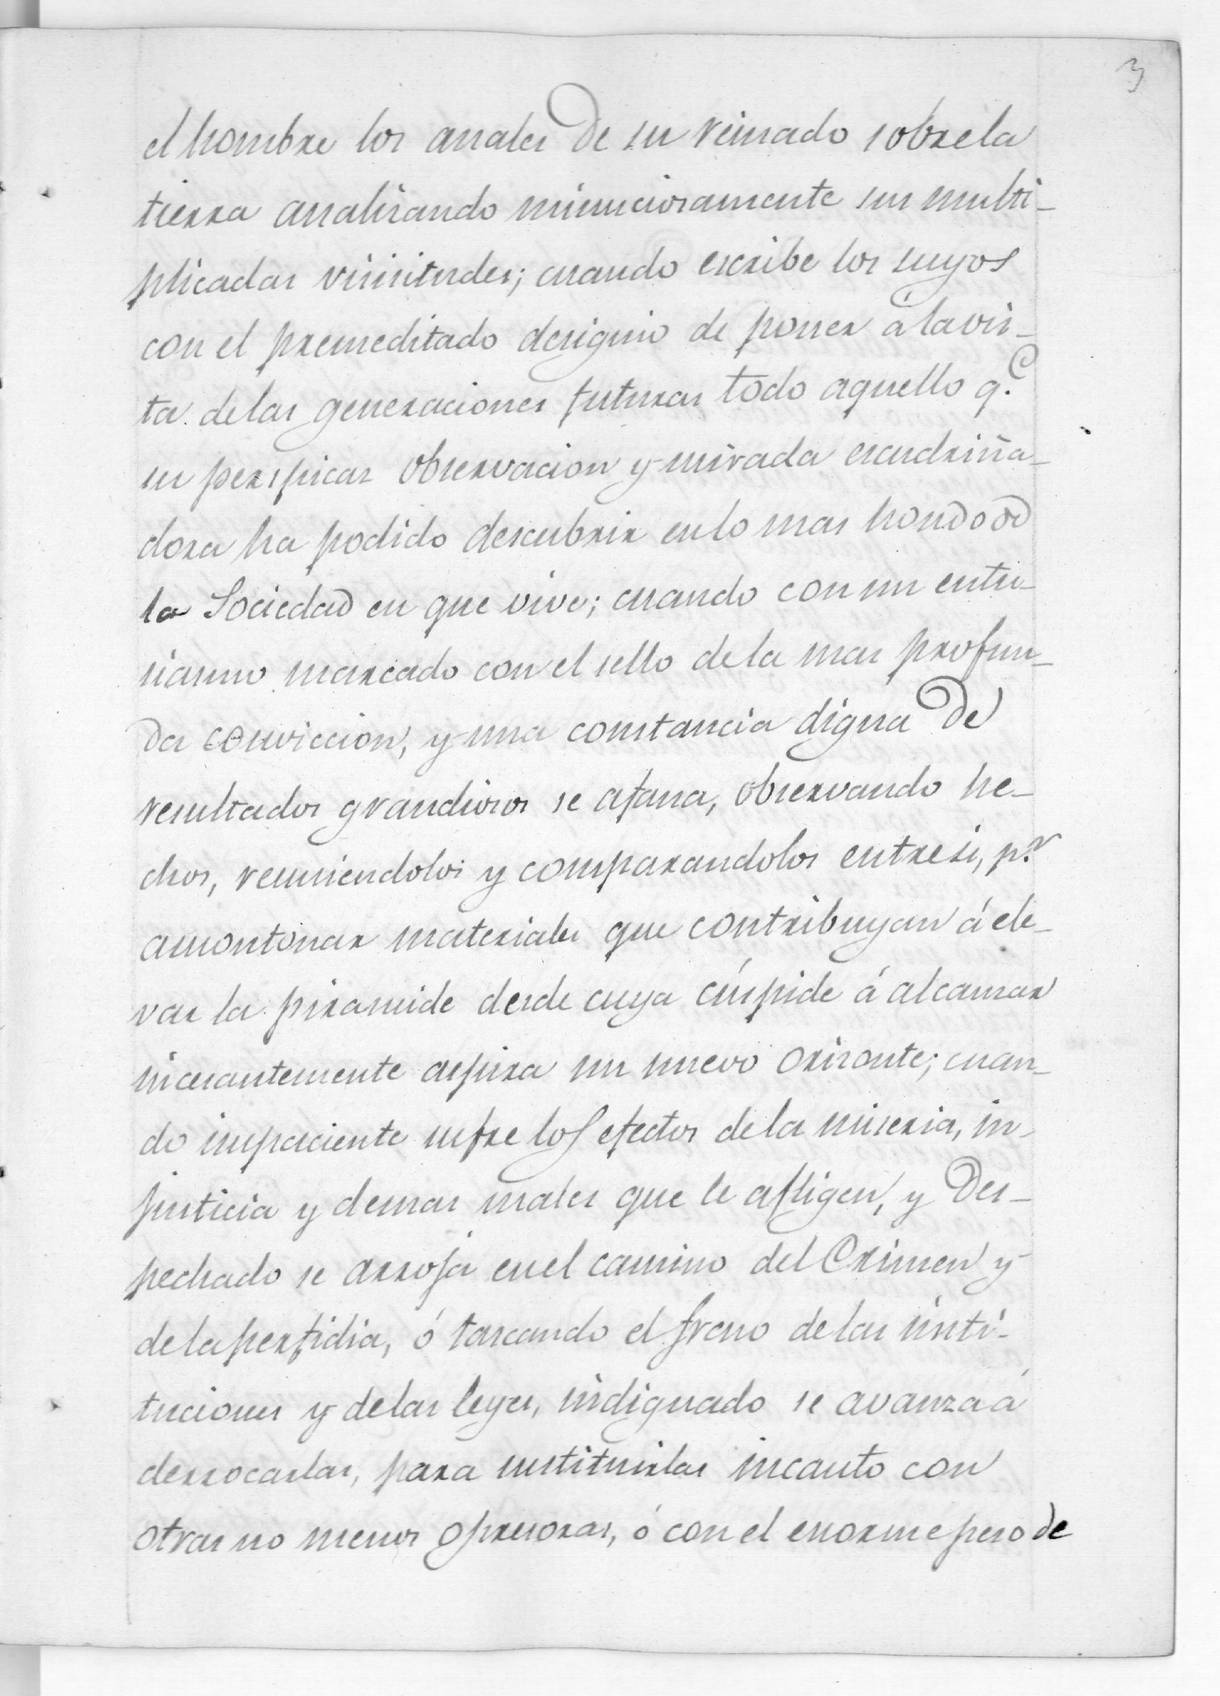 3
el hombre los anales de su reinado sobre la
tierra analisando minuciosamente sus multi-
plicadas visisitudes; cuando escribe los suyos
con el premeditado designio de poner á la vis-
ta de las generaciones futuras todo aquello q.e
su perspicas observacion y mirada escudriña-
dora ha podido descubrir en lo mas hondo de
la Sociedad en que vive; cuando con un entu-
siasmo marcado con el sello de la mas profun-
da conviccion, y una constancia digna de
resultados grandiosos se afana, observando he-
chos, reuniendolos y comparandolos entre si, p.r
amontonar materiales que contribuyan á ele-
var la piramide desde cuya cúspide á alcansar
incesantemente aspira un nuevo orisonte; cuan-
do impaciente sufre los efectos de la miseria, in-
justicia y demas males que le afligen, y des-
pechado se arroja en el camino del Crimen y
de la perfidia, ó tascando el freno de las insti-
tuciones y de las leyes, indignado se avanza á
derrocarlas, para sustituirlas incauto con
otras no menos opresoras, ó con el enorme peso de